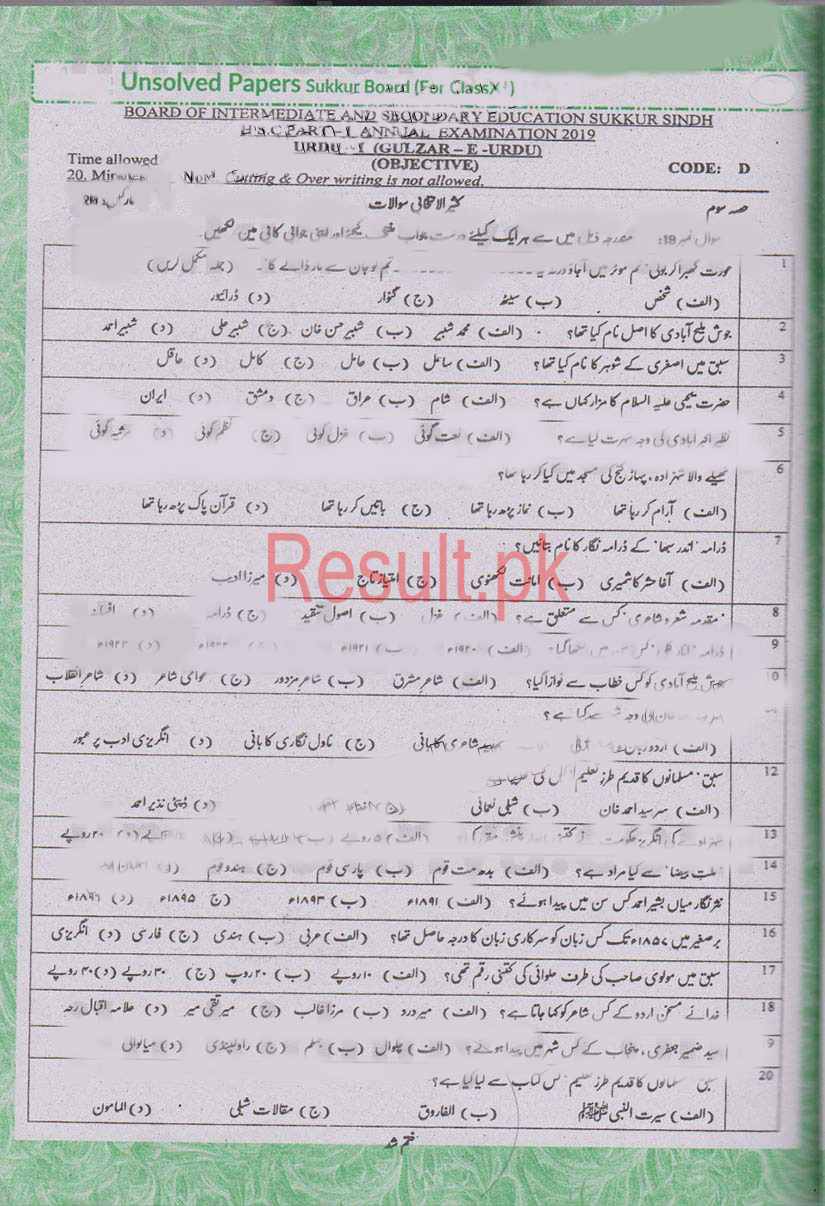 Unsolved Papers Sukkur Board (For Class X )
BOARD OF INTERMEDIATE AND SECONDARY EDUCATION SUKKUR SINDH
ANNUAL EXAMINATION 2019
(GULZAR – E -URDU)
(OBJECTIVE)
CODE: D
Time allowed
20. Minutes
Cutting & Over writing is not allowed.
کثیر الانتخابی سوالات
حصہ سوم
سوال نمبر 19: مندرجہ ذیل میں سے ہر ایک کیلئے درست جواب اور اپنی جوابی کاپی میں لکھیں
1 عورت گھبرا کر بولی تم موٹر میں آجاؤ ورنہ یہ تم کو جان سے مار ڈالے گا۔ (جملہ مکمل کریں)
(الف) شخص (ب) سیٹھ (ج) گنوار (د) ڈرائیور
2 جوش ملیح آبادی کا اصل نام کیا تھا؟ (الف) محمد شبیر (ب) شبیر حسن خان (ج) شبیر علی (د) شبیر احمد
3 سبق میں اصغری کے شوہر کا نام کیا تھا؟ (الف) سائل (ب) عامل (ج) کامل (د) عاقل
4 حضرت یحیٰی علیہ السلام کا مزار کہاں ہے؟ (الف) شام (ب) عراق (ج) دمشق (د) ایران
5 نظیر اکبر آبادی کی وجہ شہرت کیا ہے؟ (الف) نعت گوئی (ب) غزل گوئی (ج) نظم گوئی (د) مرثیہ گوئی
6 ٹھیلے والا شہزادہ، پہاڑ گنج کی مسجد میں کیا کر رہا تھا؟
(الف) آرام کر رہا تھا (ب) نماز پڑھ رہا تھا (ج) باتیں کر رہا تھا (د) قرآن پاک پڑھ رہا تھا
7 ڈرامہ 'اندر سبھا' کے ڈرامہ نگار کا نام بتائیں؟
(الف) آغا حشر کاشمیری (ب) امانت لکھنوی (ج) امتیاز تاج (د) میرزا ادیب
Result.pk
8 'مقدمہ شعر و شاعری' کس سے متعلق ہے؟ (الف) غزل (ب) اصول تنقید (ج) ڈرامہ (د)
9 ڈرامہ (الف) ۱۹۲۰ء (ب) ۱۹۲۱ء (ج) ۱۹۲۲ء (د) ۱۹۲۳ء
10 جوش ملیح آبادی کو کس خطاب سے نوازا گیا؟ (الف) شاعر مشرق (ب) شاعر مزدور (ج) عوامی شاعر (د) شاعر انقلاب
وجہ کیا ہے؟
(الف) اردو زبان شاعری کا بانی (ج) ناول نگاری کا بانی (د) انگریزی ادب پر عبور
12 سبق 'مسلمانوں کا قدیم طرز تعلیم'
(الف) سر سید احمد خان (ب) شبلی نعمانی (د) ڈپٹی نذیر احمد
13 کی انگریز حکومت (الف) ۵ روپے (د) ۲۰ روپے
14 'ملت بیضا' سے کیا مراد ہے؟ (الف) بدھ مت قوم (ب) پارسی قوم (ج) ہندو قوم (د)
15 نثر نگار میاں بشیر احمد کس سن میں پیدا ہوئے؟ (الف) ۱۸۹۱ء (ب) ۱۸۹۳ء (ج) ۱۸۹۵ء (د) ۱۸۹۶ء
16 برصغیر میں ۱۸۵۷ء تک کس زبان کو سرکاری زبان کا درجہ حاصل تھا؟ (الف) عربی (ب) ہندی (ج) فارسی (د) انگریزی
17 سبق میں مولوی صاحب کی طرف حلوائی کی کتنی رقم تھی؟ (الف) ۱۰ روپے (ب) ۲۰ روپ (ج) ۳۰ روپے (د) ۴۰ روپے
18 خدائے سخن اردو کے کس شاعر کو کہا جاتا ہے؟ (الف) میر درد (ب) مرزا غالب (ج) میر تقی میر (د) علامہ اقبال رحہ
9 سید ضمیر جعفری، پنجاب کے کس شہر میں پیدا ہوئے؟ (الف) چکوال (ب) جہلم (ج) راولپنڈی (د) میانوالی
20 سبق مسلمانوں کا قدیم طرز تعلیم کس کتاب سے لیا گیا ہے؟
(الف) سیرت النبی ﷺ (ب) الفاروق (ج) مقالات شبلی (د) المامون
ختم شد